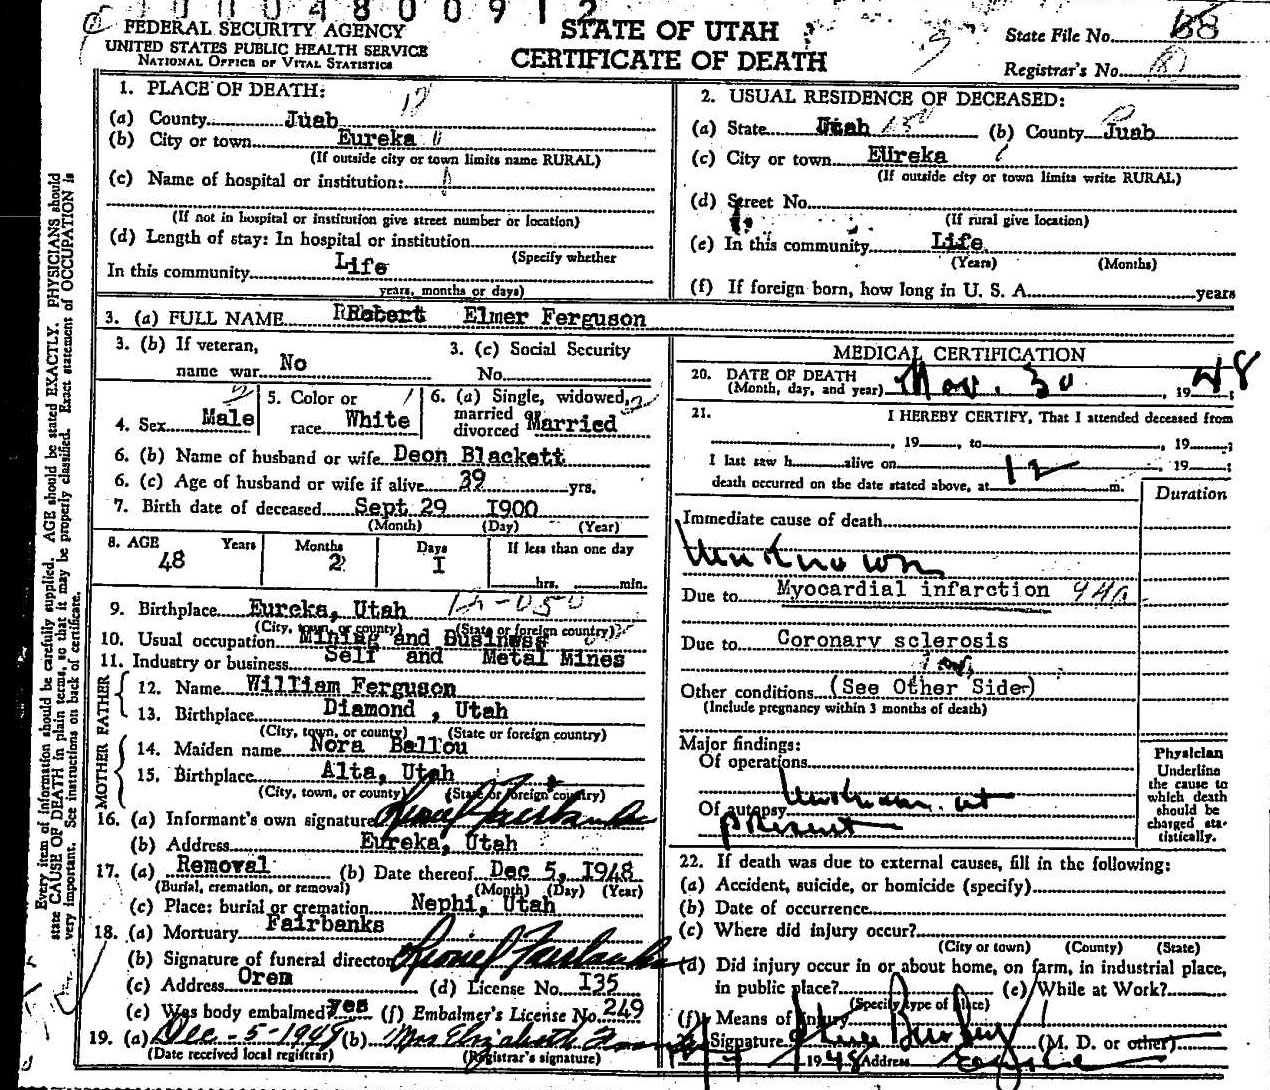 000480091 2
FEDERAL SECURITY AGENCY
UNITED STATES PUBLIC HEALTH SERVICE
NATIONAL OFFICE OF VITAL STATISTICS
STATE OF UTAH
CERTIFICATE OF DEATH
State File No. 68
Registrar's No.
Every item of information should be carefully supplied. AGE should be stated EXACTLY. PHYSICIANS should
state CAUSE OF DEATH in plain terms, so that it may be properly classified. Exact statement of OCCUPATION is
very important. See instructions on back of certificate.
1. PLACE OF DEATH:
(a) County Juab
(b) City or town Eureka
(If outside city or town limits name RURAL)
(c) Name of hospital or institution:
(If not in hospital or institution give street number or location)
(d) Length of stay: In hospital or institution
(Specify whether
In this community Life
years, months or days)
2. USUAL RESIDENCE OF DECEASED:
(a) State Utah (b) County Juab
(c) City or town Eureka
(If outside city or town limits write RURAL)
(d) Street No.
(If rural give location)
(e) In this community Life
(Years) (Months)
(f) If foreign born, how long in U. S. A. years
3. (a) FULL NAME Robert Elmer Ferguson
3. (b) If veteran,
name war No
3. (c) Social Security
No.
4. Sex Male
5. Color or
race White
6. (a) Single, widowed,
married or
divorced Married
6. (b) Name of husband or wife Deon Blackett
6. (c) Age of husband or wife if alive 39 yrs.
7. Birth date of deceased Sept 29 I900
(Month) (Day) (Year)
8. AGE Years Months Days If less than one day
48 2 I hrs. min.
9. Birthplace Eureka, Utah
(City, town, or county) (State or foreign country)
10. Usual occupation Mining and Business
11. Industry or business Self and Metal Mines
FATHER
12. Name William Ferguson
13. Birthplace Diamond , Utah
(City, town, or county) (State or foreign country)
MOTHER
14. Maiden name Nora Ballou
15. Birthplace Alta, Utah
(City, town, or county) (State or foreign country)
16. (a) Informant's own signature Lionel Fairbanks
(b) Address Eureka, Utah
17. (a) Removal (b) Date thereof Dec 5, I948
(Burial, cremation, or removal) (Month) (Day) (Year)
(c) Place: burial or cremation Nephi, Utah
18. (a) Mortuary Fairbanks
(b) Signature of funeral director Lionel Fairbanks
(c) Address Orem (d) License No. I35
(e) Was body embalmed yes (f) Embalmer's License No. 249
19. (a) Dec - 5 - 1948 (b) Mrs Elizabeth
(Date received local registrar) (Registrar's signature)
MEDICAL CERTIFICATION
20. DATE OF DEATH
(Month, day, and year) Nov. 30, 1948;
21. I HEREBY CERTIFY, That I attended deceased from
, 19 , to , 19 ;
I last saw h alive on , 19 ;
death occurred on the date stated above, at 12 m.
Duration
Immediate cause of death
Unknown
Due to Myocardial infarction 94a
Due to Coronary sclerosis
Other conditions (See Other Side)
(Include pregnancy within 3 months of death)
Major findings:
Of operations
Of autopsy Unknown at
present
Physician
Underline
the cause to
which death
should be
charged sta-
tistically.
22. If death was due to external causes, fill in the following:
(a) Accident, suicide, or homicide (specify)
(b) Date of occurrence
(c) Where did injury occur?
(City or town) (County) (State)
(d) Did injury occur in or about home, on farm, in industrial place,
in public place? (e) While at Work?
(Specify type of place)
(f) Means of injury
Signature Steve (M. D. or other)
1948 Address